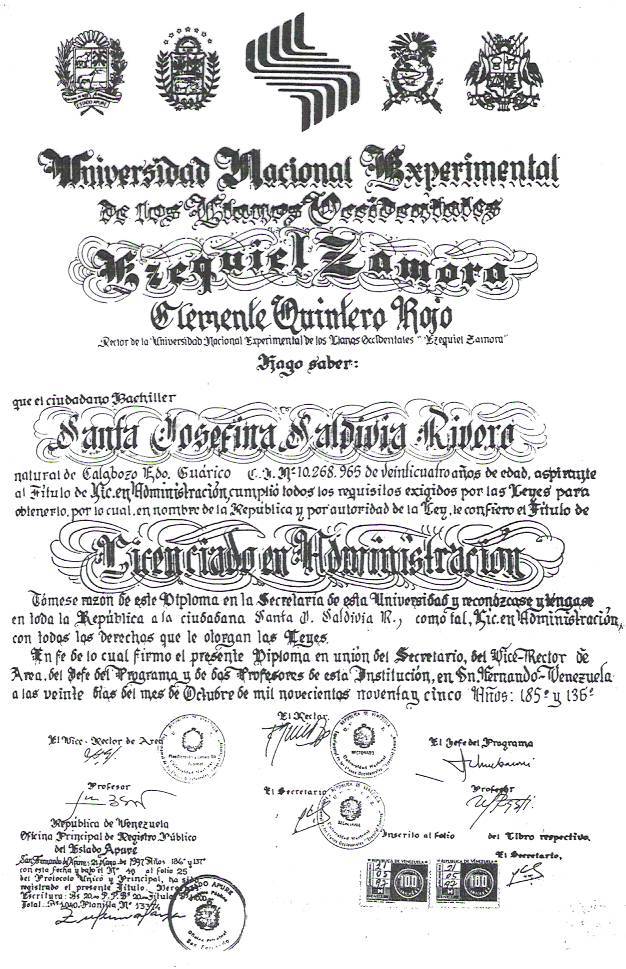 Universidad Nacional Experimental
de los Llanos Occidentales
Ezequiel Zamora
Clemente Quintero Rojo
Rector de la Universidad Nacional Experimental de los Llanos Occidentales "Ezequiel Zamora"
Hago saber:
que el ciudadano Bachiller
Santa Josefina Saldivia Rivero
natural de Calabozo Edo. Guárico C.I. Nº 10.268.965 de veinticuatro años de edad, aspirante
al Título de Lic. en Administración, cumplió todos los requisitos exigidos por las Leyes para
obtenerlo, por lo cual, en nombre de la República y por autoridad de la Ley, le confiero el Título de
Licenciado en Administración
Tómese razón de este Diploma en la Secretaria de esta Universidad y reconózcase y téngase
en toda la República a la ciudadana Santa J. Saldivia R., como tal, Lic. en Administración,
con todos los derechos que le otorgan las Leyes.
En fe de lo cual firmo el presente Diploma en unión del Secretario, del Vice-Rector de
Area, del Jefe del Programa y de dos Profesores de esta Institución, en Sn. Fernando-Venezuela
a las veinte días del mes de Octubre de mil novecientos noventa y cinco Años: 185º y 136º
El Vice-Rector de Area
El Rector
El Jefe del Programa
Profesor
El Secretario
Profesor
República de Venezuela
Oficina Principal de Registro Público
del Estado Apure
Inscrito al folio del Libro respectivo.
El Secretario,
San Fernando de Apure: 21 Mayo de 1997 Años 186º y 137º
con esta fecha y bajo el Nº 19 al folio 25
del Protocolo Unico y Principal, ha sido
registrado el presente Título.
Planilla Nº
REPUBLICA DE VENEZUELA
21
05
97
100
21
05
97
100
ESTADO APURE
San Fernando